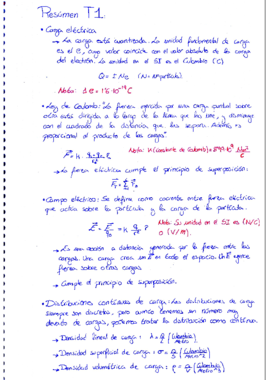 Resumen T1.
• Carga eléctrica
→ La carga está cuantizada. La unidad fundamental de carga
es el e, cuyo valor coincide con el valor absoluto de la carga
del electrón. La unidad en el SI es el Culombio (C)
Q = ± Ne (N = nº partículas).
Nota: 1e = 1'6·10⁻¹⁹ C
• Ley de Coulomb: La fuerza ejercida por una carga puntual sobre
otra está dirigida a lo largo de la línea que las une, y disminuye
con el cuadrado de la distancia que las separa. Además, es
proporcional al producto de las cargas.
Nota: K (constante de Coulomb) = 8'99·10⁹ Nm²/C²
F = K · q₁·q₂/r² r̂
→ La fuerza eléctrica cumple el principio de superposición:
• Campo eléctrico: Se define como cociente entre fuerza eléctrica
que actúa sobre la partícula y la carga de la partícula.
Nota: Su unidad en el SI es (N/C)
o (V/m).
E = F/q₀ = K q/r² r̂
→ Es una acción a distancia generada por la fuerza entre las
cargas. Una carga crea un E en todo el espacio. Un E ejerce
fuerza sobre otras cargas.
→ Cumple el principio de superposición.
• Distribuciones continuas de carga: Las distribuciones de carga
siempre son discretas, pero cuando tenemos un número muy
elevado de cargas, podremos tratar la distribución como continua.
→ Densidad lineal de carga: λ = Q/L (Culombio/Metro)
→ Densidad superficial de carga: σ = Q/S (Culombio/Metro²)
→ Densidad volumétrica de carga: ρ = Q/V (Culombio/Metro³)